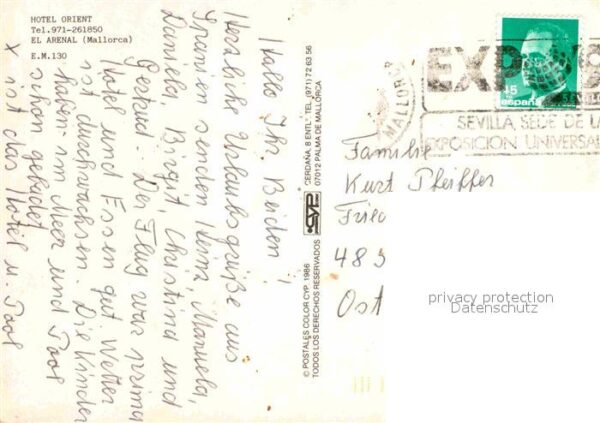 HOTEL ORIENT
Tel.971-261850
EL ARENAL (Mallorca)
E.M.130
Hallo Ihr Beiden!
Herzliche Urlaubsgrüße aus
Spanien senden Heinz, Manuela,
Daniela, Birgit, Christina und
Gertrud. Der Flug war prima
Hotel und Essen gut. Wetter
ist durchwachsen. Die Kinder
haben im Meer und Pool
schon gebadet.
X ist das Hotel u. Pool
© POSTALES COLOR CYP, 1986
TODOS LOS DERECHOS RESERVADOS
CYP
CERDAÑA, 8 ENTL° TEL. (971) 72 63 56
07012 PALMA DE MALLORCA
15
españa
MALLORC
EXPO
SEVILLA, SEDE DE LA
EXPOSICION UNIVERSAL
Familie
Kurt Pfeiffer
Fried
483
Ost
privacy protection
Datenschutz